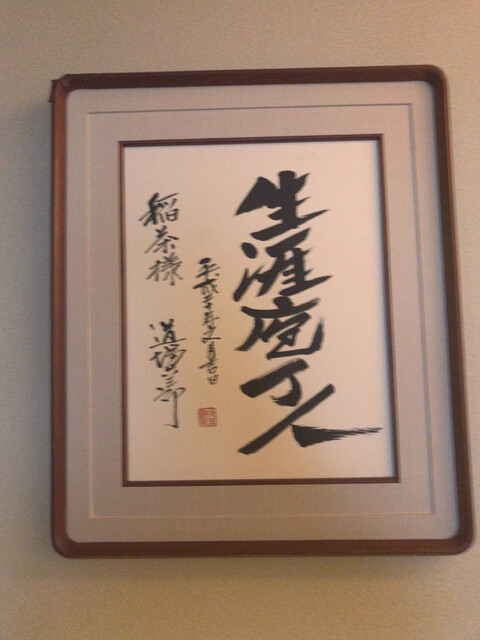 生涯庖丁人
平成二十年七月吉日
稲茶様
道場六三郎